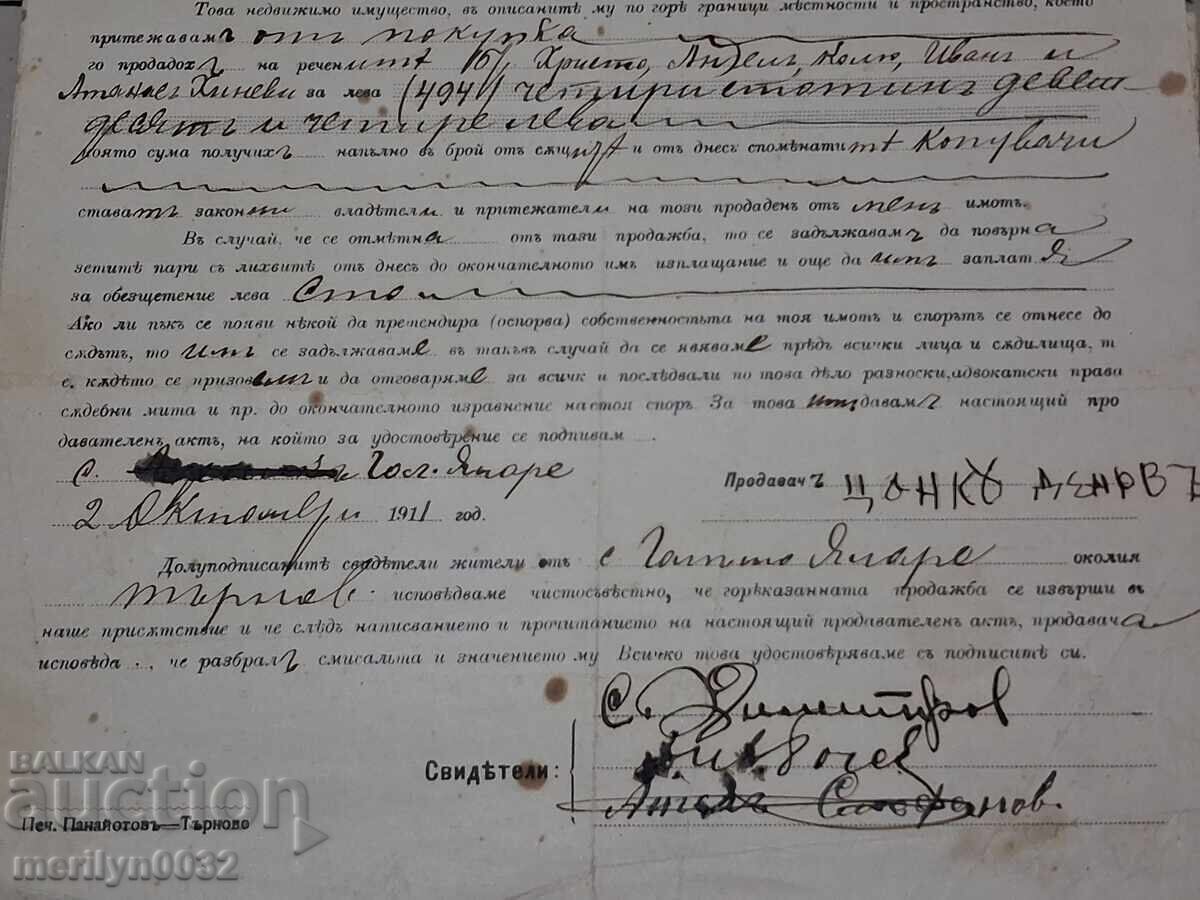 Това недвижимо имущество, въ описанитѣ му по горѣ граници мѣстности и пространство, което
притежавамъ отъ покупка
го продадохъ на реченитѣ Христо, Ангелъ, Колю, Иванъ и
Атанасъ Хиневи за лева (494) четиристотинъ деветь
десять и четире лева
която сума получихъ напълно въ брой отъ сѫщитѣ и отъ днесъ спомѣнатитѣ копувачи
ставатъ законни владѣтели и притежатели на този продаденъ отъ менъ имотъ.
Въ случай, че се отмѣтна отъ тази продажба, то се задължавамъ да повърна
зетитѣ пари съ лихвитѣ отъ днесъ до окончателното имъ изплащание и още да имъ заплатя
за обезщетение лева сто
Ако ли пъкъ се появи нѣкой да претендира (оспорва) собственностьта на тоя имотъ и спорътъ се отнесе до
сѫдътъ, то имъ се задължаваме въ такъвъ случай да се явяваме прѣдъ всички лица и сѫдилища, т
е. кѫдѣто се призовемъ и да отговаряме за всичк и послѣдвали по това дѣло разноски, адвокатски права
сѫдебни мита и пр. до окончателното изравнение настоя споръ. За това имъ давамъ настоящий про
давателенъ актъ, на който за удостовѣрение се подпивам
с. Гол. Яларе
2 Октомври 1911 год.
Продавачъ ЦАНКО ДЕНЮВЪ
Долуподписанитѣ свидѣтели жители отъ с Голѣмо Яларе околия
Търнов. исповѣдваме чистосъвѣстно, че горѣказанната продажба се извърши въ
наше присѫтствие и че слѣдъ написванието и прочитанието на настоящий продавателенъ актъ, продавача
исповѣда .., че разбралъ смисалъта и значението му Всичко това удостовѣряваме съ подписитѣ си.
С. Димитров
Свидѣтели:
Стефанов.
Печ. Панайотовъ—Търново
BALKAN
auction
merilyn0032